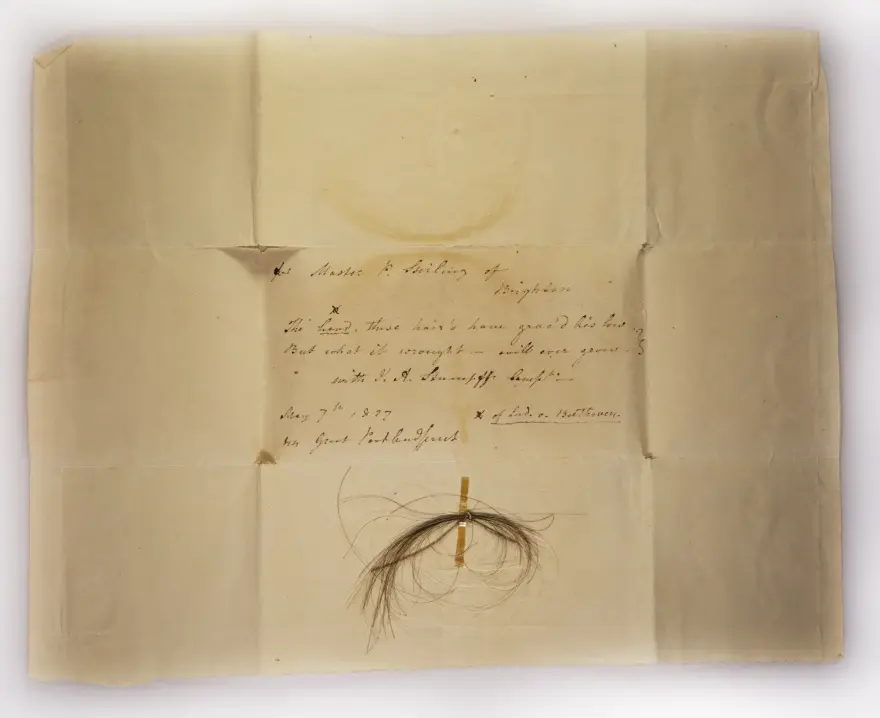 for Master P. Stirling of
Brighton
x
The head, these hair's have grac'd lies low
But what it wrought — will ever grow.
with J. A. Stumpff's
May 7th 1827
x of Lud. v. Beethoven.
44 Great Portland street